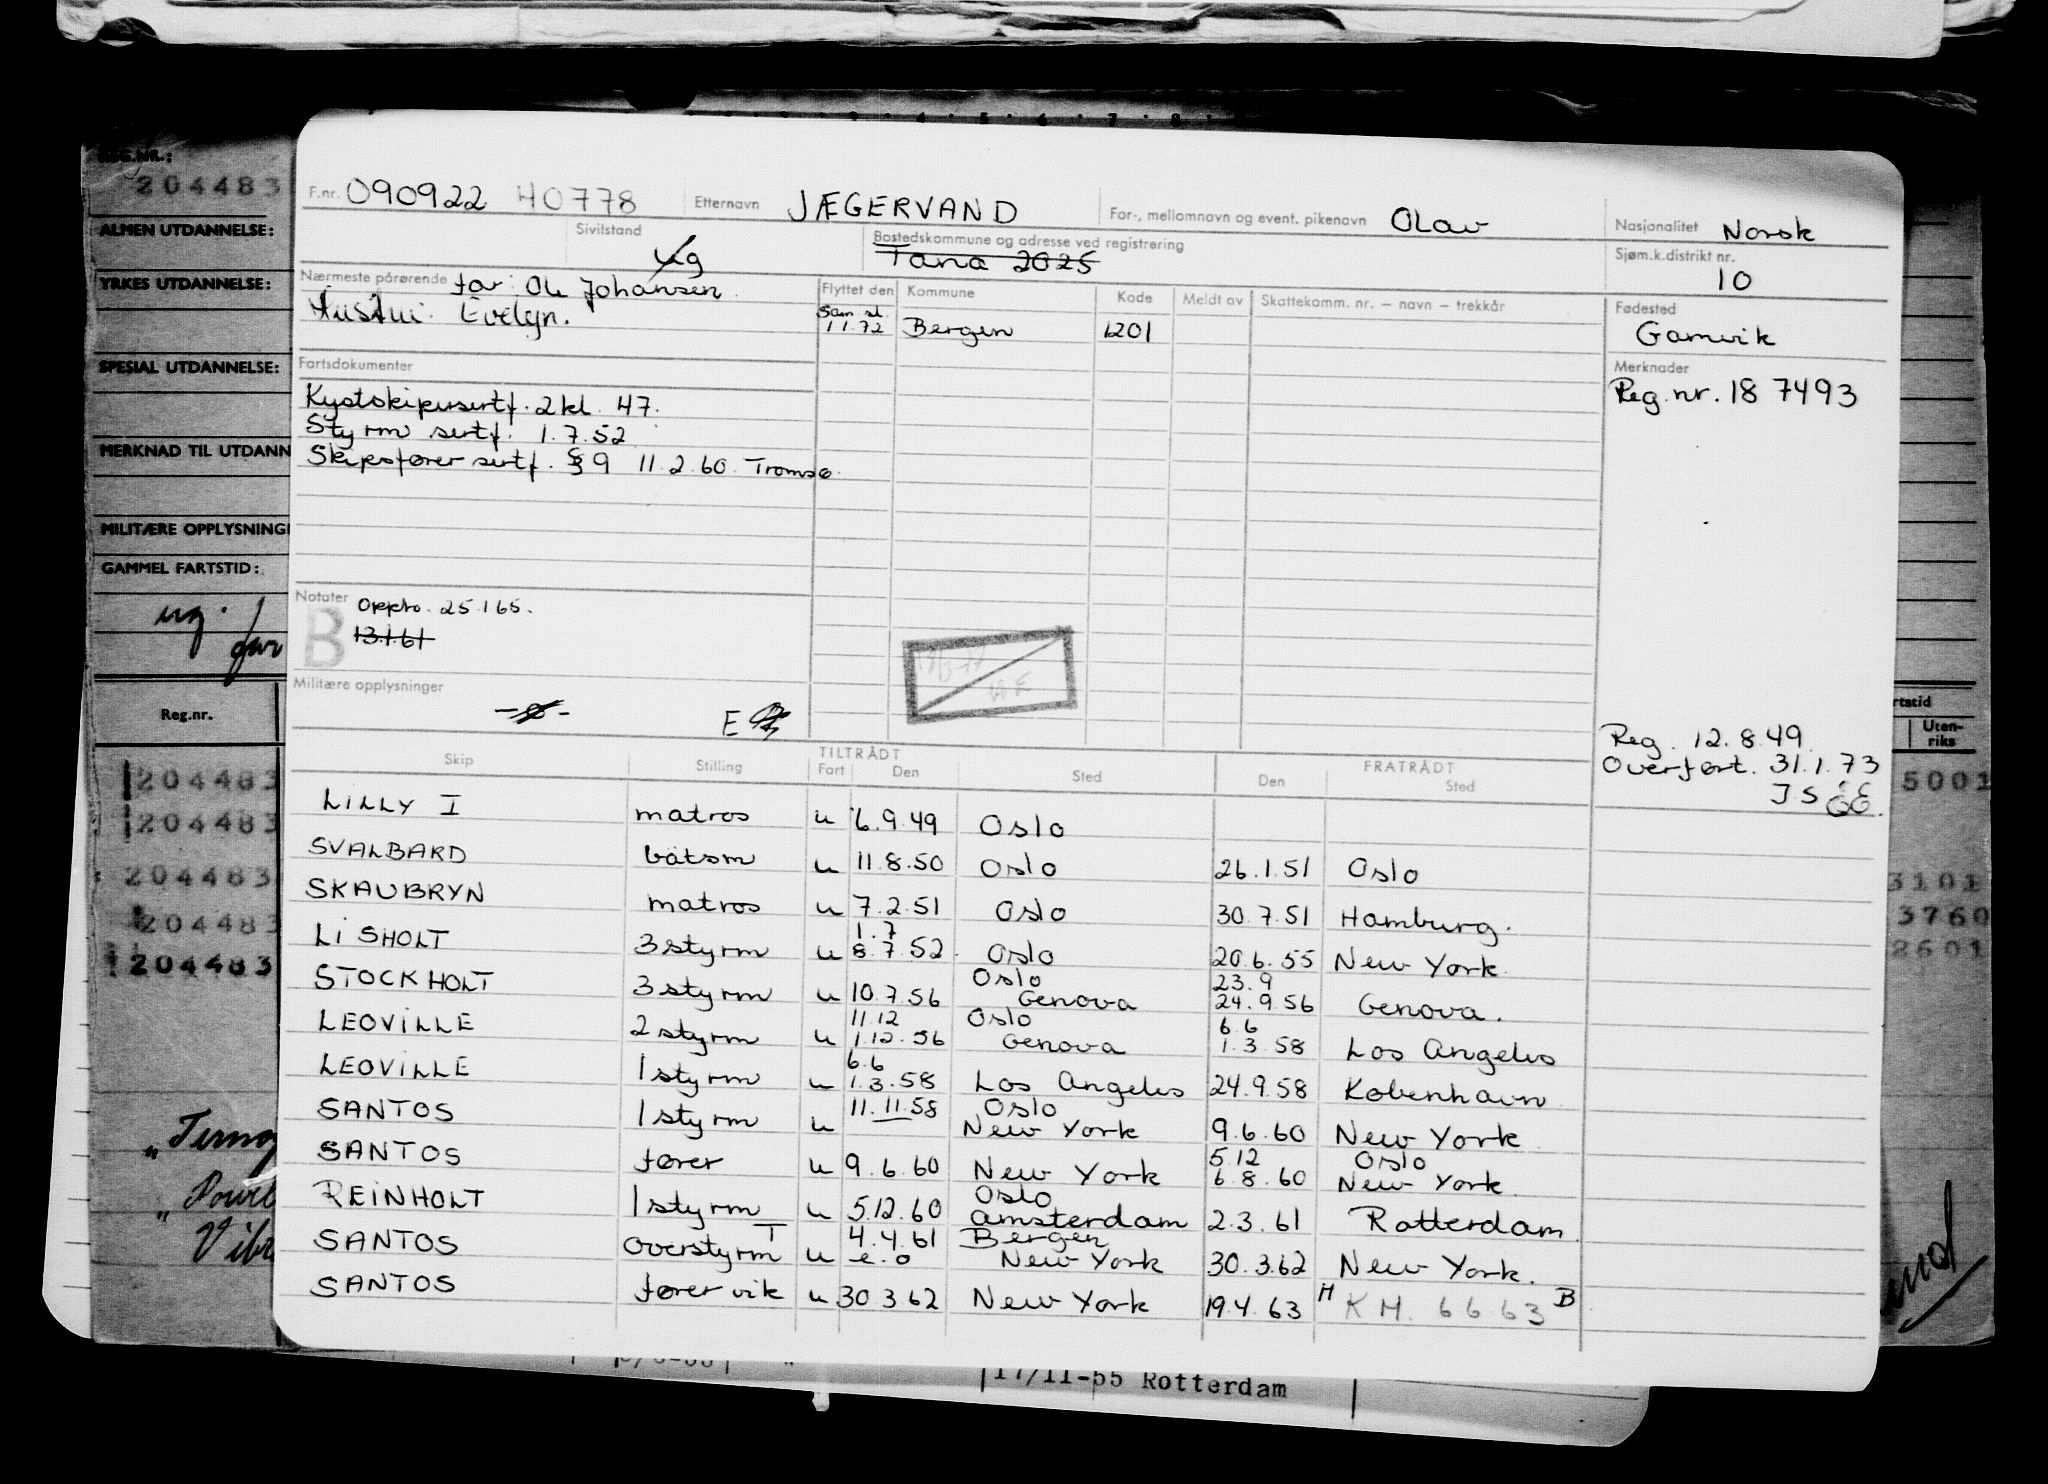 REG.NR.:
204483
ALMEN UTDANNELSE:
YRKES UTDANNELSE:
SPESIAL UTDANNELSE:
MERKNAD TIL UTDANN
MILITÆRE OPPLYSNING
GAMMEL FARTSTID:
ug.
Reg.nr.
204483
204483
204483
204483
204483
F.nr. 090922 40778 Etternavn JÆGERVAND For-, mellomnavn og event. pikenavn Olav Nasjonalitet Norsk
Sivilstand ug Bostedskommune og adresse ved registrering Tana 2025 Sjøm.k.distrikt nr. 10
Nærmeste pårørende far: Ole Johansen.
Hustru: Evelyn.
Flyttet den Kommune Kode Meldt av Skattekomm. nr. – navn – trekkår
Sam st
1.1.72 Bergen 1201
Fødested
Gamvik
Fartsdokumenter
Kystskipersertf. 2kl. 47.
Styrm sertf. 1.7.52
Skipsfører sertf. §9 11.2.60. Tromsø.
Merknader
Reg.nr. 18 7493
Notater Oppto. 25.1.65.
B 13.1.61
Militære opplysninger
E
Reg. 12.8.49
Overført. 31.1.73
J.S
TILTRÅDT FRATRÅDT
Skip Stilling Fart Den Sted Den Sted
LILLY I matros u 6.9.49 Oslo
SVALBARD båtsm u 11.8.50 Oslo 26.1.51 Oslo
SKAUBRYN matros u 7.2.51 Oslo 30.7.51 Hamburg.
1.7
LISHOLT 3styrm u 8.7.52. Oslo 20.6.55 New York.
Oslo 23.9
STOCKHOLT 3styrm u 10.7.56 Genova 24.9.56 Genova.
11.12 Oslo 6.6
LEOVILLE 2styrm u 1.12.56 Genova 1.3.58 Los Angeles
6.6
LEOVILLE 1styrm u 1.3.58 Los Angeles 24.9.58 København
11.11.58 Oslo
SANTOS 1styrm u New York 9.6.60 New York
5.12 Oslo
SANTOS fører u 9.6.60 New York 6.8.60 New York.
Oslo
REINHOLT 1styrm u 5.12.60 Amsterdam 2.3.61 Rotterdam.
T 4.4.61 Bergen
SANTOS overstyrm u e.o New York 30.3.62 New York.
SANTOS fører vik u 30.3.62 New York 19.4.63 H K M. 6663 B
rtstid
Uten-
riks
5001
3101
3760
2601
17/11-55 Rotterdam